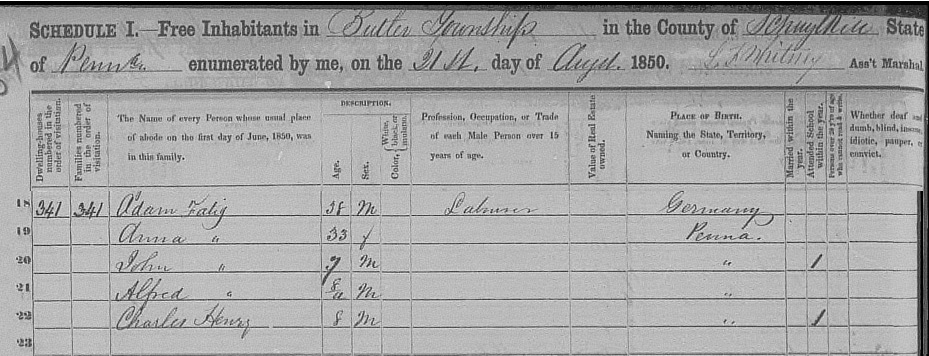 SCHEDULE I.—Free Inhabitants in Butler Township in the County of Schuylkill State
of Penna. enumerated by me, on the 21st. day of Augst. 1850. Ass't Marshal
Dwelling-houses numbered in the order of visitation.
Families numbered in the order of visitation.
The Name of every Person whose usual place of abode on the first day of June, 1850, was in this family.
DESCRIPTION.
Age.
Sex.
Color, White, black, or mulatto.
Profession, Occupation, or Trade of each Male Person over 15 years of age.
Value of Real Estate owned.
PLACE OF BIRTH. Naming the State, Territory, or Country.
Married within the year.
Attended School within the year.
Persons over 20 y'rs of age who cannot read & write.
Whether deaf and dumb, blind, insane, idiotic, pauper, or convict.
18 341 341 Adam Fatig 38 M Labourer Germany
19 Anna " 33 f Penna.
20 John " 9 M " 1
21 Alfred " M "
22 Charles Henry 8 M " 1
23